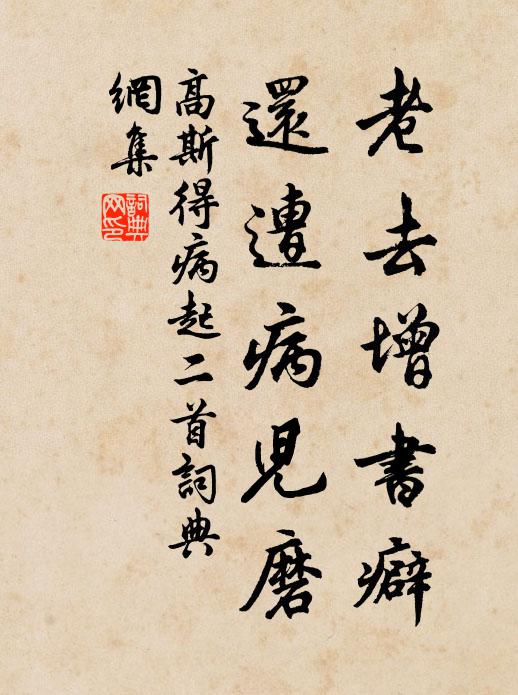 老去增書癖
還遭病兒磨
高斯得病起二首詞典
網集
詞典網印